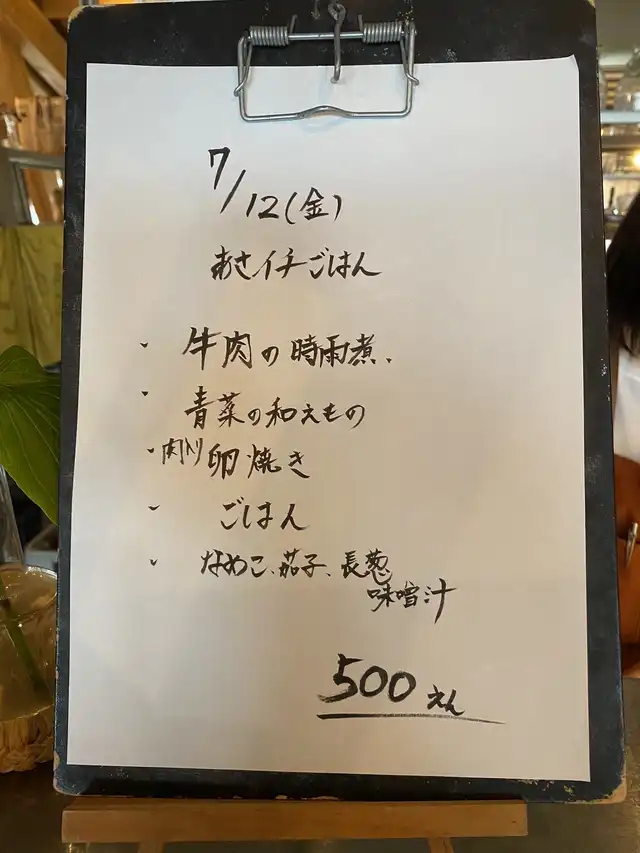 7/12(金)
あさイチごはん
・牛肉の時雨煮、
・青菜の和えもの
・肉入り卵焼き
・ごはん
・なめこ、茄子、長葱
味噌汁
500えん